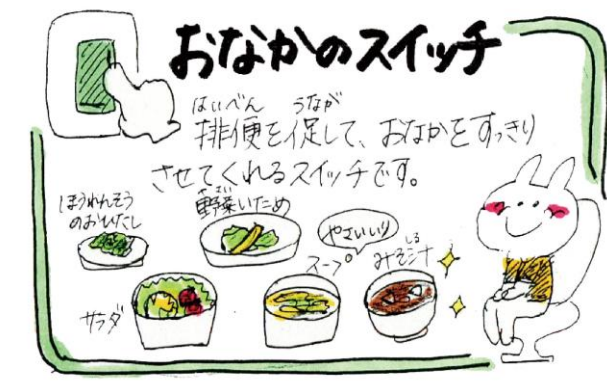 おなかのスイッチ
はいべん うなが
排便を促して、おなかをすっきり
させてくれるスイッチです。
ほうれんそう
のおひたし
やさい
野菜いため
やさいいり
スープ
しる
みそ汁
サラダ